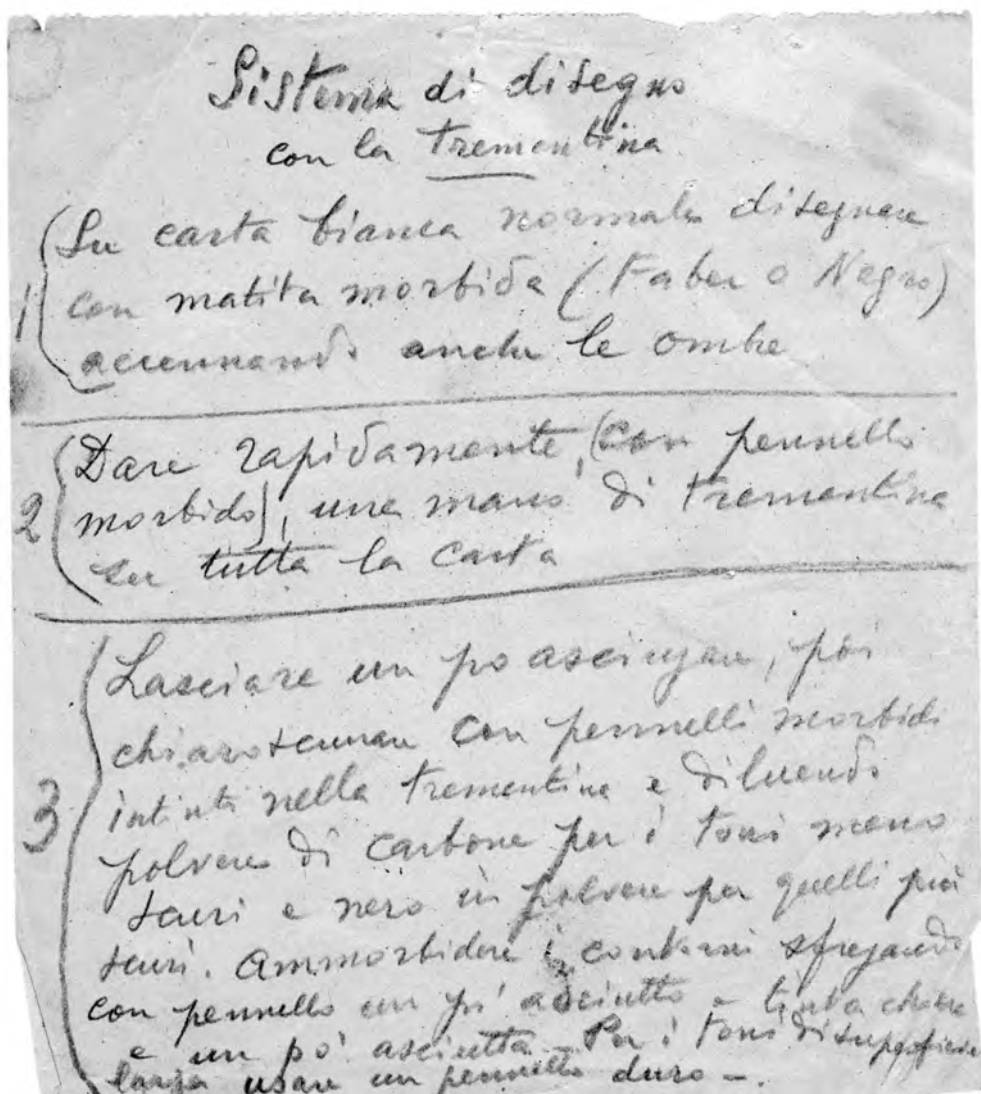 Sistema di disegno
con la trementina
1 Su carta bianca normale disegnare
con matita morbida (Faber o Negro)
accennando anche le ombre
2 Dare rapidamente, (con pennello
morbido), una mano di trementina
su tutta la carta
3 Lasciare un po asciugare, poi
chiaroscurare con pennelli morbidi
intinti nella trementina e diluendo
polvere di carbone per i toni meno
scuri e nero in polvere per quelli più
scuri. Ammorbidire i contorni sfregando
con pennello un po' asciutto - tinta chiara
e un po' asciutta - Per i toni di superficie
larga usare un pennello duro -.